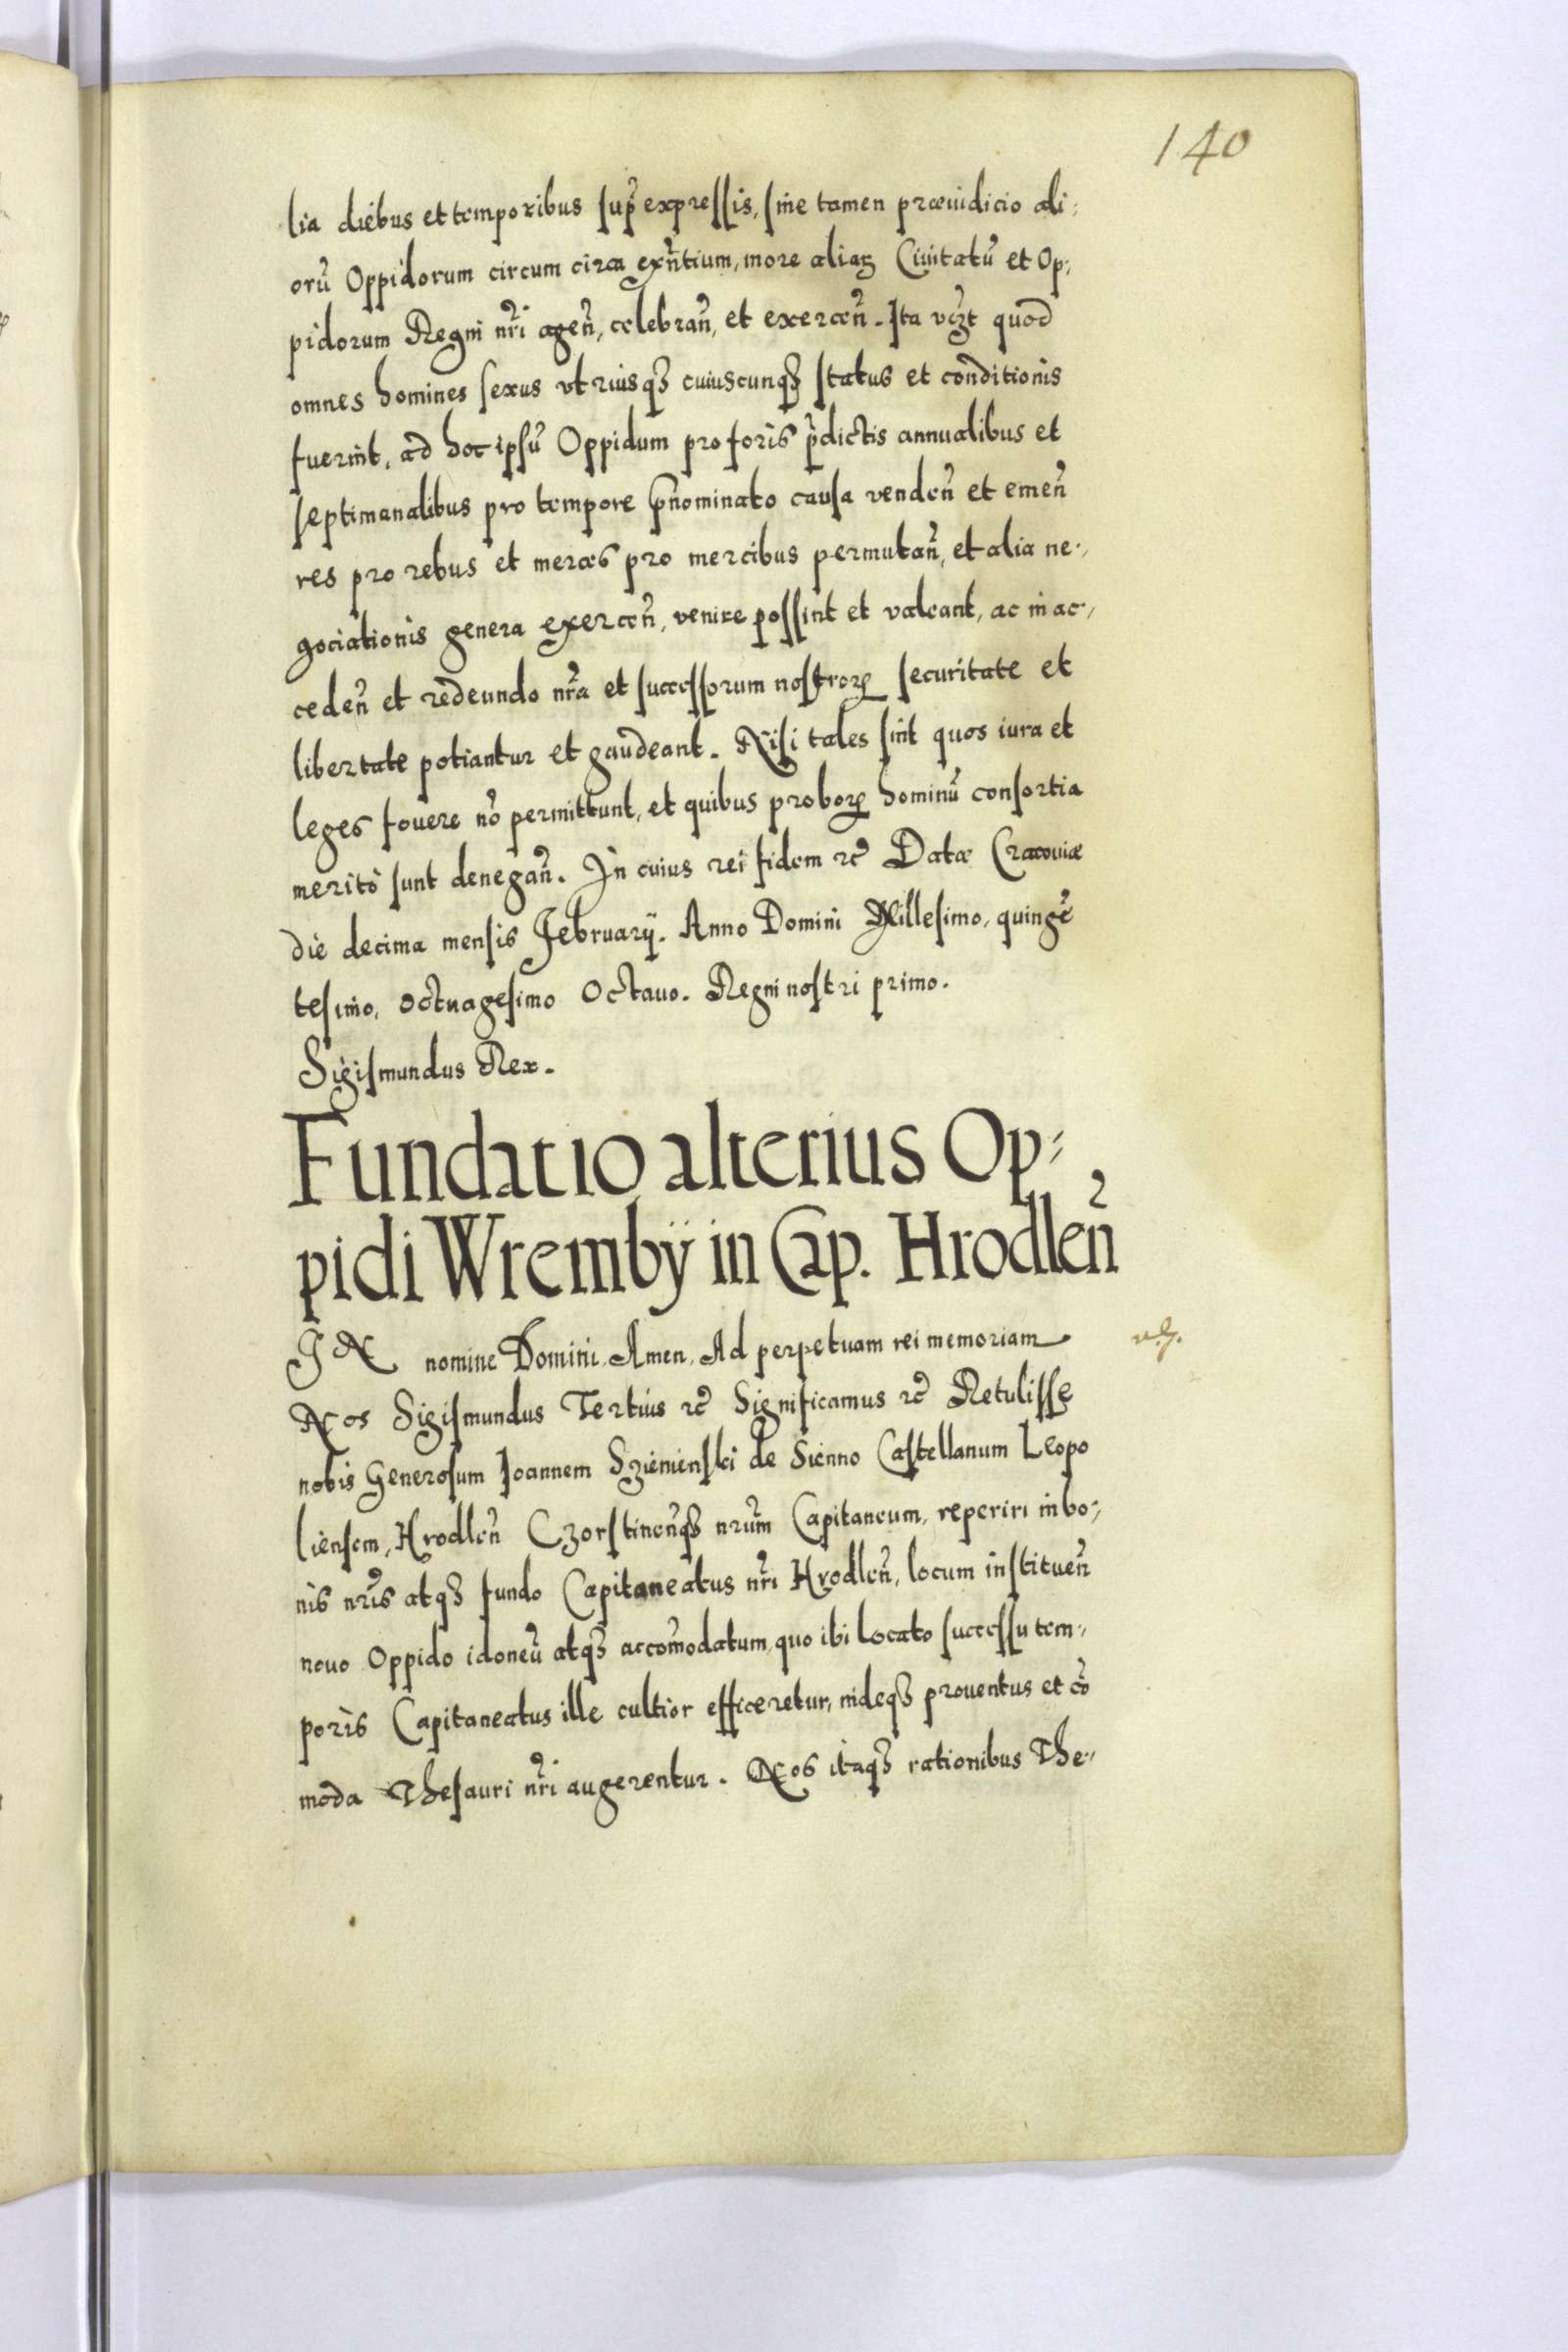 140
lia diebus et temporibus sup̃ expressis, sine tamen præiudicio ali:
orũ Oppidorum circum circa exñtium, more aliaꝝ Ciuitatũ et Op:
pidorum Regni nr̃i ageñ, celebrañ, et exerceñ. Ita vꝫt quod
omnes homines sexus vtriusqꝫ cuiuscunqꝫ status et conditionis
fuerint, ad hoc ipsũ Oppidum pro foris p̃dictis annualibus et
septimanalibus pro tempore p̃nominato causa vendeñ et emeñ
res pro rebus et merces pro mercibus permutañ, et alia ne:
gociationis genera exerceñ, venire possint et valeant, ac in ac:
cedeñ et redeundo nr̃a et successorum nostroꝝ securitate et
libertate potiantur et gaudeant. Nisi tales sint quos iura et
leges fouere nõ permittunt, et quibus proboꝝ hominũ consortia
meritò sunt denegañ. In cuius rei fidem ꝛc̃ Datæ Cracouiæ
die decima mensis February. Anno Domini Millesimo, quingẽ
tesimo, octuagesimo Octauo. Regni nostri primo.
Sigismundus Rex.
Fundatio alterius Op:
pidi Wremby in Cap. Hrodleñ
IN nomine Domini, Amen, Ad perpetuam rei memoriam
Nos Sigismundus Tertius ꝛc̃ Significamus ꝛc̃ Retulisse
nobis Generosum Ioannem Szienienski de Sienno Castellanum Leopo
liensem, Hrodleñ Czorstineñqꝫ nr̃um Capitaneum, reperiri in bo:
nis nr̃is atqꝫ fundo Capitaneatus nr̃i Hrodleñ, locum instituen̄
nouo Oppido idoneũ atqꝫ accom̃odatum, quo ibi locato successu tem:
poris Capitaneatus ille cultior efficeretur, indeqꝫ prouentus et cõ
moda Thesauri nr̃i augerentur. Nos itaqꝫ rationibus The: